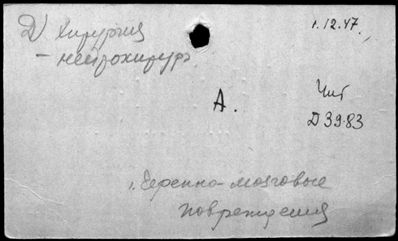 Д) Хирургия
1.12.47.
– нейрохирург.
А.
Чит
Д 39.83
Черепно-мозговые
повреждения